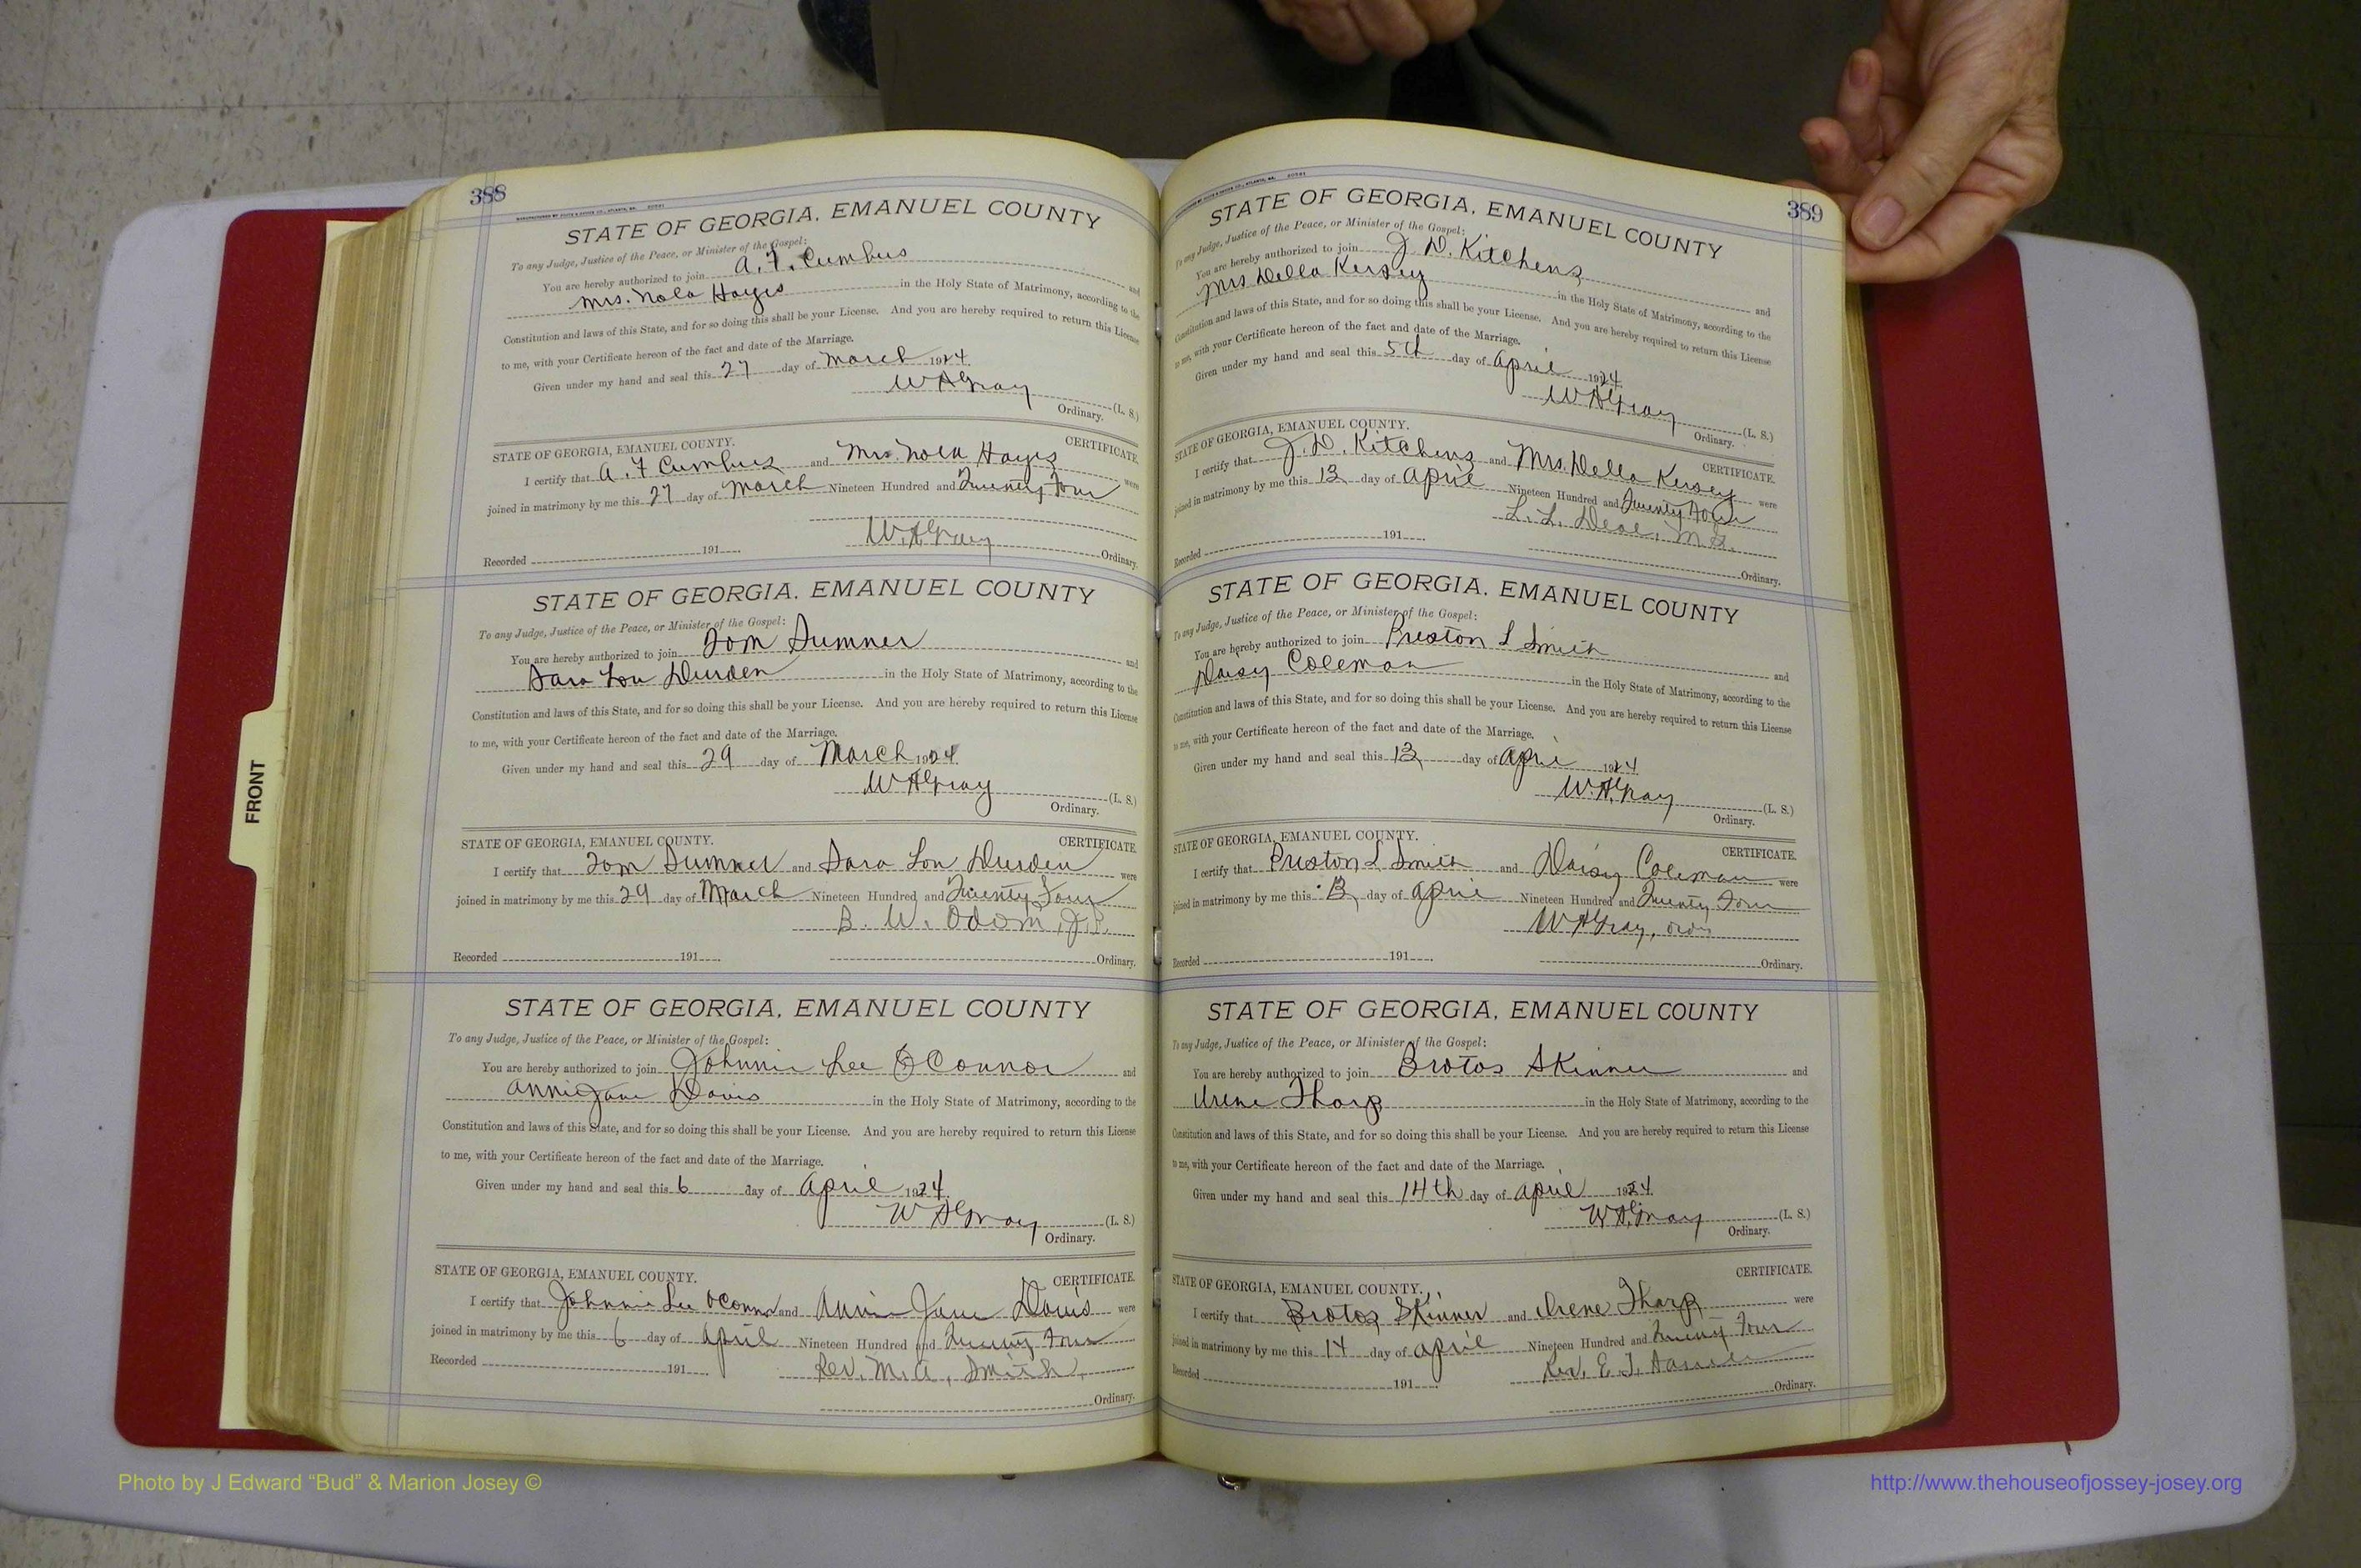 388
STATE OF GEORGIA, EMANUEL COUNTY
To any Judge, Justice of the Peace, or Minister of the Gospel:
You are hereby authorized to join A. F. Cumbus and
Mrs. Nola Hayes in the Holy State of Matrimony, according to the
Constitution and laws of this State, and for so doing this shall be your License. And you are hereby required to return this License
to me, with your Certificate hereon of the fact and date of the Marriage.
Given under my hand and seal this 27 day of March 1924.
W H Gray (L. S.)
Ordinary.
STATE OF GEORGIA, EMANUEL COUNTY. CERTIFICATE.
I certify that A. F Cumbus and Mrs. Nola Hayes were
joined in matrimony by me this 27 day of March Nineteen Hundred and Twenty Four
W. H Gray
Recorded 191 Ordinary.
STATE OF GEORGIA. EMANUEL COUNTY
To any Judge, Justice of the Peace, or Minister of the Gospel:
You are hereby authorized to join Tom Sumner and
Sara Lou Durden in the Holy State of Matrimony, according to the
Constitution and laws of this State, and for so doing this shall be your License. And you are hereby required to return this License
to me, with your Certificate hereon of the fact and date of the Marriage.
Given under my hand and seal this 29 day of March 1924.
W H Gray (L. S.)
Ordinary.
STATE OF GEORGIA, EMANUEL COUNTY. CERTIFICATE.
I certify that Tom Sumner and Sara Lou Durden were
joined in matrimony by me this 29 day of March Nineteen Hundred and Twenty Four
B. W. Odom, J.P.
Recorded 191 Ordinary.
STATE OF GEORGIA, EMANUEL COUNTY
To any Judge, Justice of the Peace, or Minister of the Gospel:
You are hereby authorized to join Johnnie Lee O'Connor and
Annie Jane Davis in the Holy State of Matrimony, according to the
Constitution and laws of this State, and for so doing this shall be your License. And you are hereby required to return this License
to me, with your Certificate hereon of the fact and date of the Marriage.
Given under my hand and seal this 6 day of April 1924.
W H Gray (L. S.)
Ordinary.
STATE OF GEORGIA, EMANUEL COUNTY. CERTIFICATE.
I certify that Johnnie Lee OConnor and Annie Jane Davis were
joined in matrimony by me this 6 day of April Nineteen Hundred and Twenty Four
Recorded 191 Rev. M. A. Smith.
Ordinary.
389
STATE OF GEORGIA, EMANUEL COUNTY
To any Judge, Justice of the Peace, or Minister of the Gospel:
You are hereby authorized to join J. D. Kitchens and
Mrs Della Kersey in the Holy State of Matrimony, according to the
Constitution and laws of this State, and for so doing this shall be your License. And you are hereby required to return this License
to me, with your Certificate hereon of the fact and date of the Marriage.
Given under my hand and seal this 5th day of April 1924.
W H Gray (L. S.)
Ordinary.
STATE OF GEORGIA, EMANUEL COUNTY. CERTIFICATE.
I certify that J. D. Kitchens and Mrs. Della Kersey were
joined in matrimony by me this 13 day of April Nineteen Hundred and Twenty Four
L. L. Deal, M.G.
Recorded 191 Ordinary.
STATE OF GEORGIA. EMANUEL COUNTY
To any Judge, Justice of the Peace, or Minister of the Gospel:
You are hereby authorized to join Preston L Smith and
Daisy Coleman in the Holy State of Matrimony, according to the
Constitution and laws of this State, and for so doing this shall be your License. And you are hereby required to return this License
to me, with your Certificate hereon of the fact and date of the Marriage.
Given under my hand and seal this 13 day of April 1924
W. H. Gray (L. S.)
Ordinary.
STATE OF GEORGIA, EMANUEL COUNTY. CERTIFICATE.
I certify that Preston L Smith and Daisy Coleman were
joined in matrimony by me this 13 day of April Nineteen Hundred and Twenty Four
W H Gray, Ordy
Recorded 191 Ordinary.
STATE OF GEORGIA, EMANUEL COUNTY
To any Judge, Justice of the Peace, or Minister of the Gospel:
You are hereby authorized to join Brotos Skinner and
Irene Tharp in the Holy State of Matrimony, according to the
Constitution and laws of this State, and for so doing this shall be your License. And you are hereby required to return this License
to me, with your Certificate hereon of the fact and date of the Marriage.
Given under my hand and seal this 14th day of April 1924.
W H Gray (L. S.)
Ordinary.
STATE OF GEORGIA, EMANUEL COUNTY. CERTIFICATE.
I certify that Brotos Skinner and Irene Tharp were
joined in matrimony by me this 14 day of April Nineteen Hundred and Twenty Four
Recorded 191 Rev. E. J.
Ordinary.
FRONT
Photo by J Edward “Bud” & Marion Josey ©
http://www.thehouseofjossey-josey.org